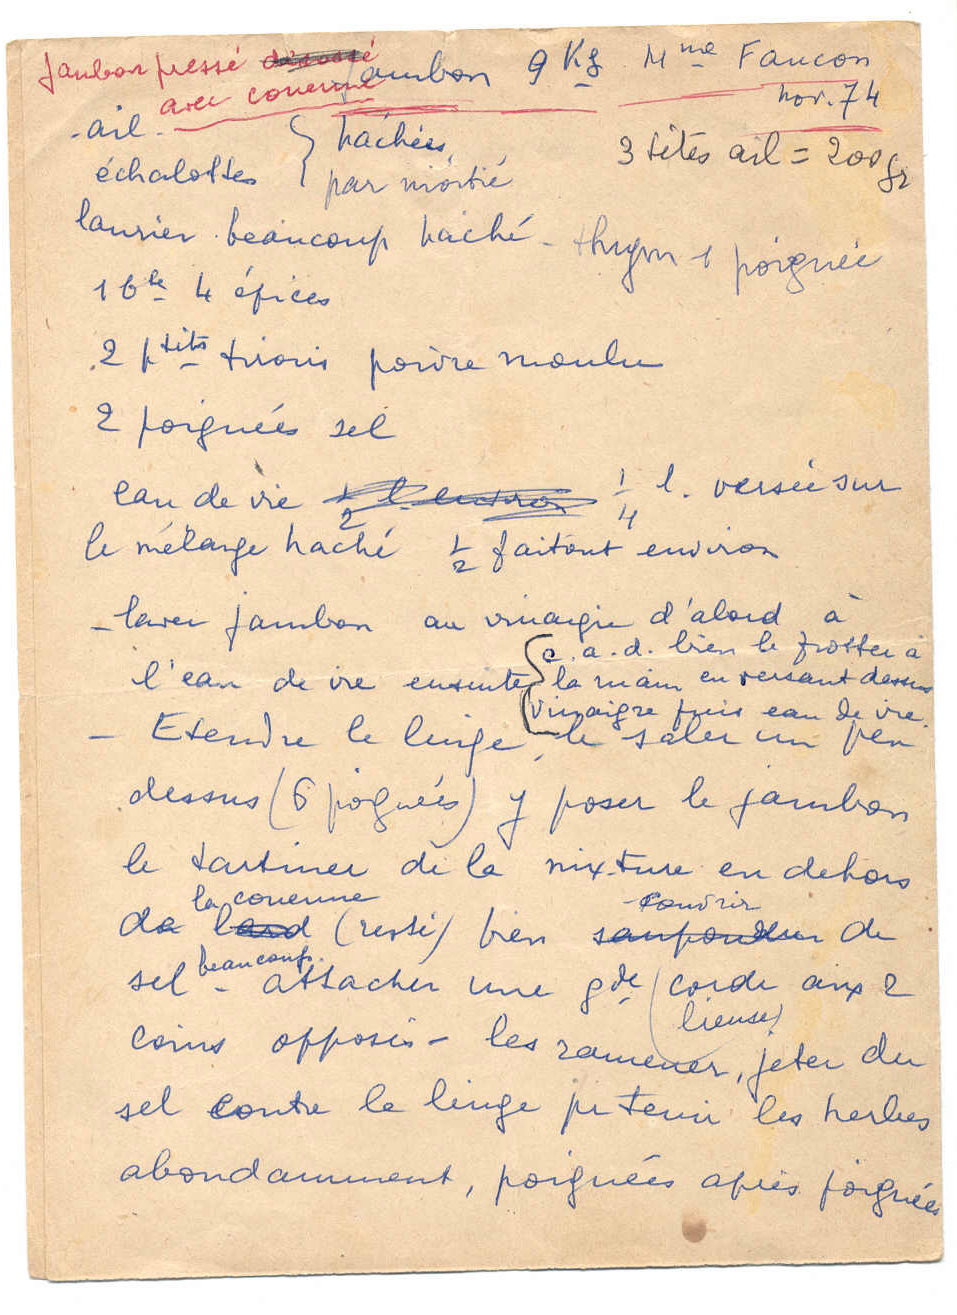 Jambon pressé désossé
avec couenne
Jambon 9 Kg Mme Faucon
nov. 74
- ail - } hachées
échalottes } par moitié
3 têtes ail = 200 gr
laurier beaucoup haché - thym 1 poignée
1 bte 4 épices
2 ptits poivre moulu
2 poignées sel
eau de vie 1/2 l. environ 1/4 l. versée sur
le mélange haché 1/2 faitout environ
- laver jambon au vinaigre d'abord à
l'eau de vie ensuite { c.a.d. bien le frotter à
la main en versant dessus
vinaigre puis eau de vie.
- Etendre le linge, le saler un peu
dessus (6 pognées) y poser le jambon
le tartiner de la mixture en dehors
la couenne
de lard (resté) bien saupoudrer couvrir de
sel beaucoup - attacher une gde (corde aux 2
lieuse)
coins opposés - les ramener, jeter du
sel contre le linge pr tenir les herbes
abondamment, poignées après poignées